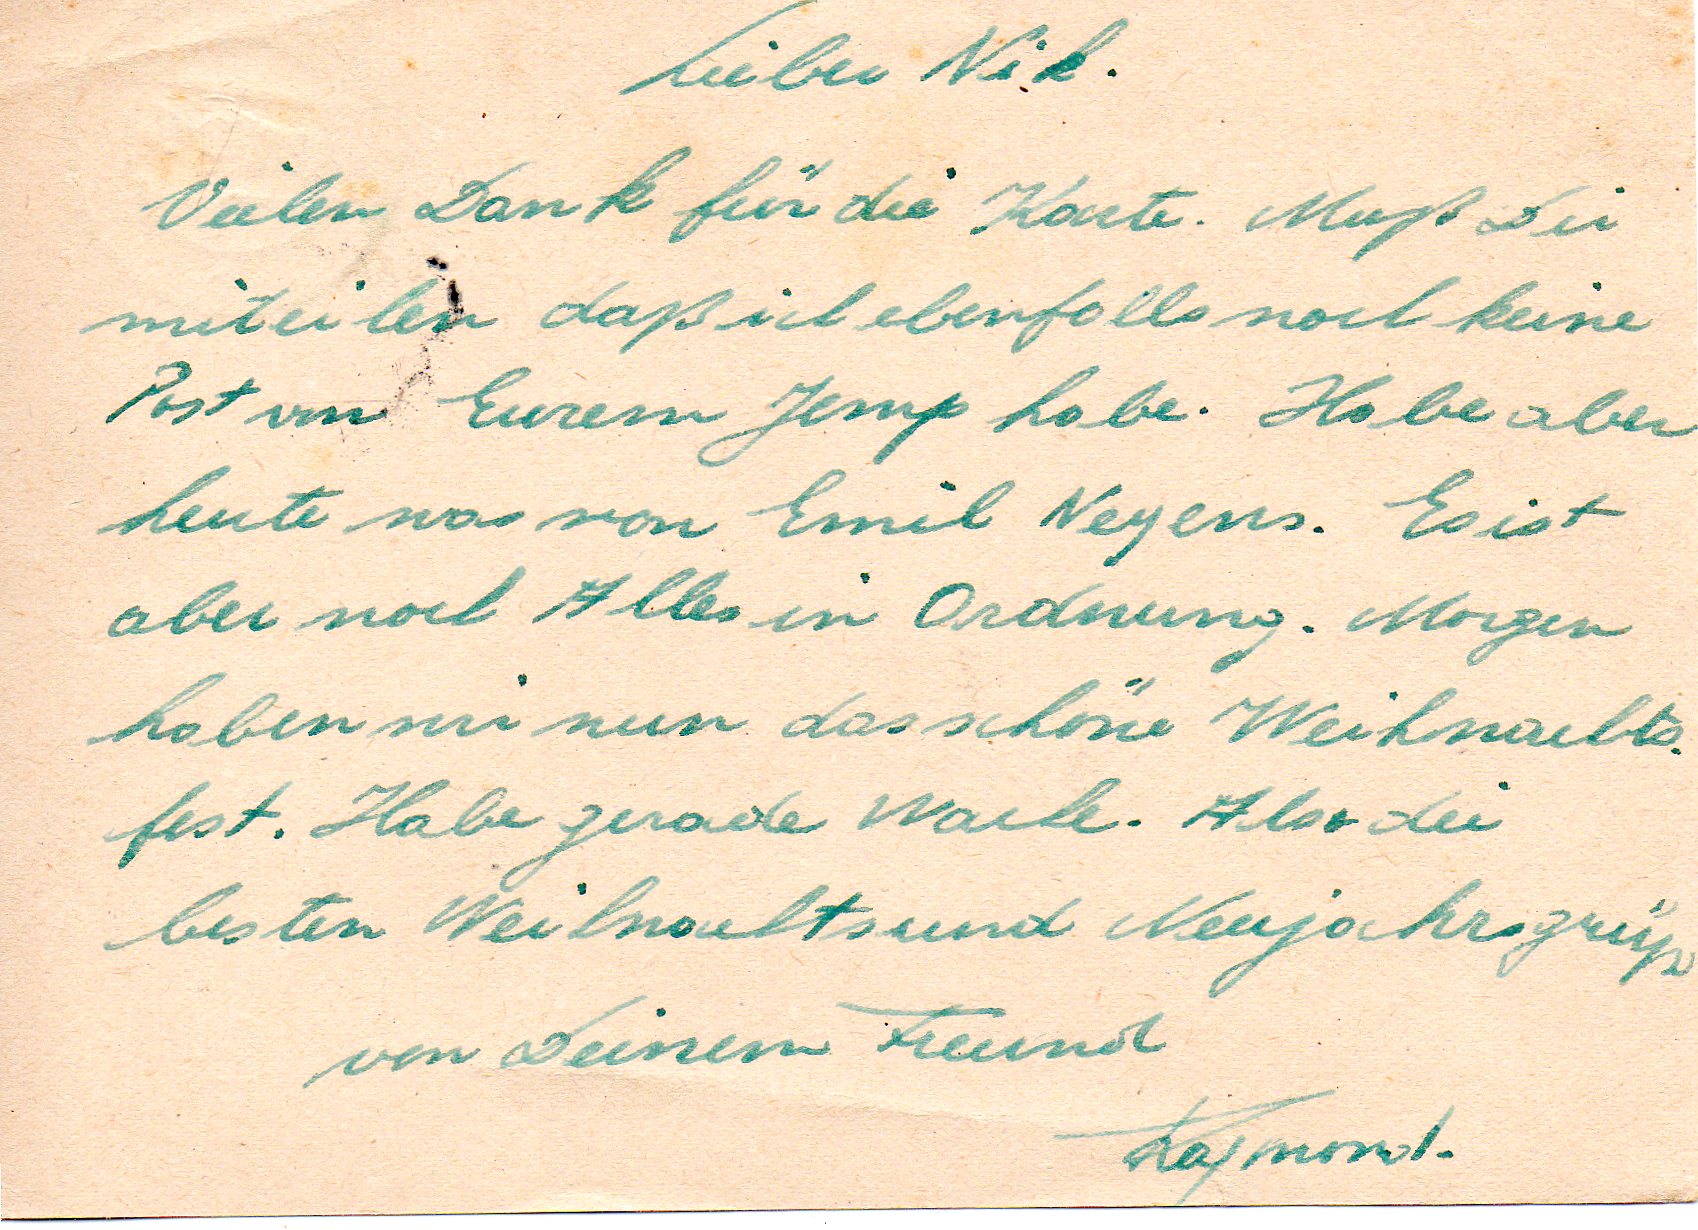 Lieber Nik.
Vielen Dank für die Karte. Muß Dir
miteilen daß ich ebenfalls noch keine
Post von Eurem Jemp habe. Habe aber
heute was von Emil Neyens. Es ist
aber noch Alles in Ordnung. Morgen
haben wir nun das schöne Weihnachts-
fest. Habe gerade Wache. Also die
besten Weihnachts und Neujahrsgrüße
von Deinem Freund
Raymond.